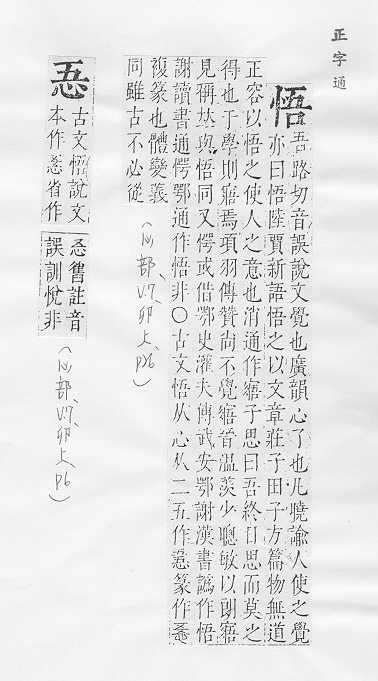 正字通
悟
吾路切音誤說文覺也廣韻心了也凡曉諭人使之覺
亦曰悟陸賈新語悟之以文章莊子田子方篇物無道
正容以悟之使人之意也消通作寤子思曰吾終日思而莫之
得也于學則寤焉項羽傳贊尚不覺寤晉溫羨少聰敏以朗寤
見稱𡘋與悟同又愕或借鄂史灌夫傳武安鄂謝漢書譌作悟
謝讀書通愕鄂通作悟非〇古文悟从心从二五作㤳篆作
複篆也體變義
同雖古不必從
(心部、V.7、卯上、P26)
㤳
古文悟說文
本作省作
㤳舊註音
誤訓悅非
(心部、V.7、卯上、P6)